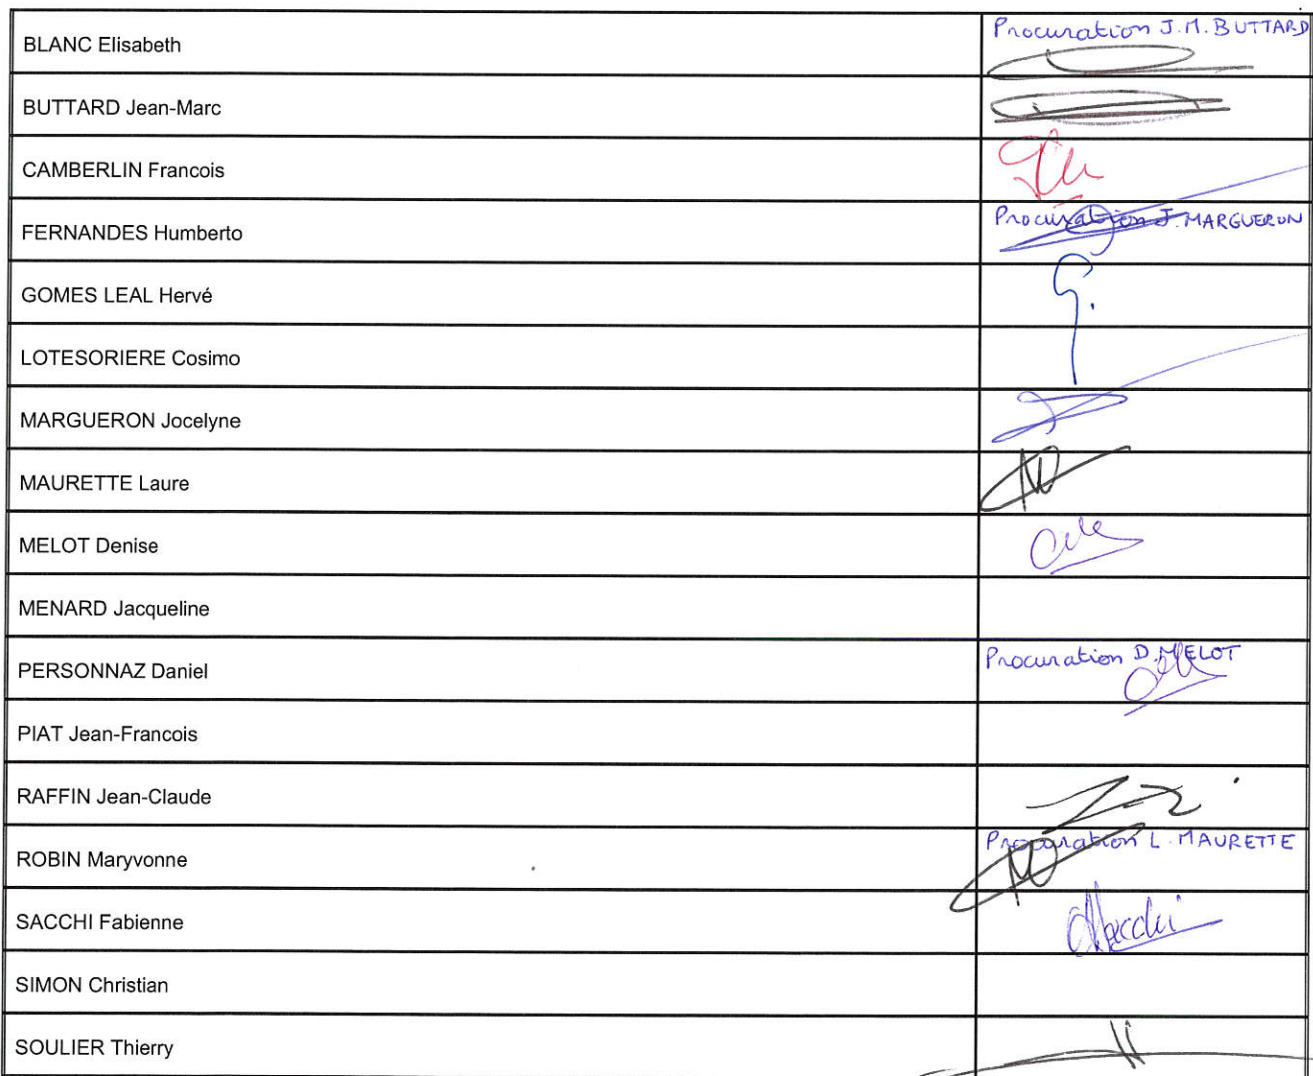 BLANC Elisabeth
Procuration J.M. BUTTARD
BUTTARD Jean-Marc
CAMBERLIN Francois
FERNANDES Humberto
Procuration J. MARGUERON
GOMES LEAL Hervé
LOTESORIERE Cosimo
MARGUERON Jocelyne
MAURETTE Laure
MELOT Denise
MENARD Jacqueline
PERSONNAZ Daniel
Procuration D. MELOT
PIAT Jean-Francois
RAFFIN Jean-Claude
ROBIN Maryvonne
Procuration L. MAURETTE
SACCHI Fabienne
SIMON Christian
SOULIER Thierry